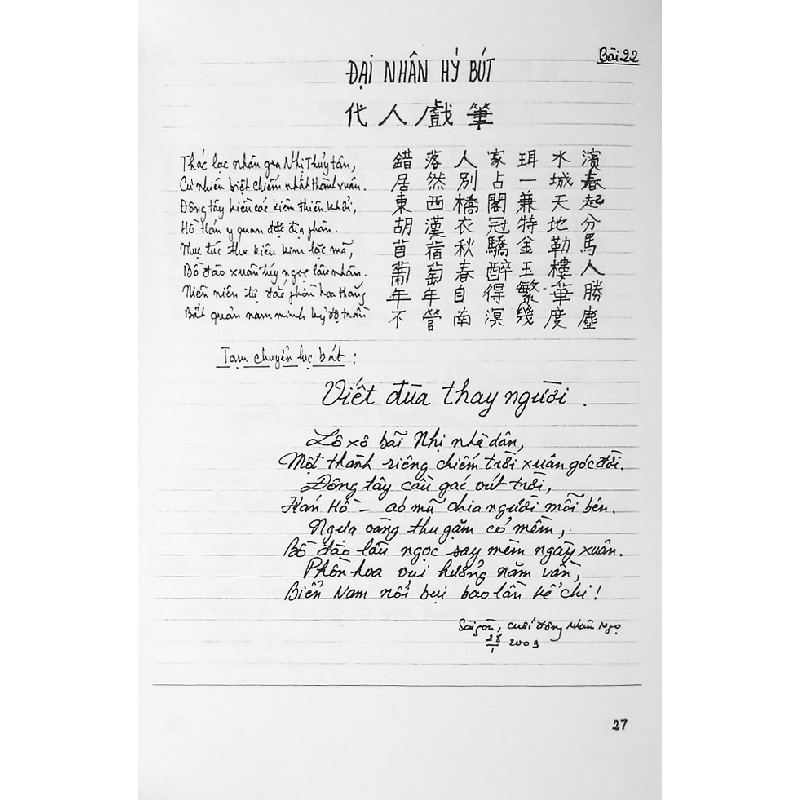 Bài 22
ĐẠI NHÂN HÝ BÚT
代人戲筆
Thác lạc nhân gia Nhị Thủy tân,
Cư nhiên biệt chiếm nhất thành xuân.
Đông tây kiền các kiêm thiên khởi,
Hồ Hán y quan đặc địa phân.
Mục túc thu kiêu kim lặc mã,
Bồ đào xuân túy ngọc lâu nhân.
Niên niên tự đắc phồn hoa thắng
Bất quản nam minh kỷ độ trần
錯落人家珥水濱
居然別占一城春
東西橋閣兼天起
胡漢衣冠特地分
苜蓿秋驕金勒馬
葡萄春醉玉樓人
年年自得繁華勝
不管南溟幾度塵
Tạm chuyển lục bát :
Viết đùa thay người .
Lô xô bãi Nhị nhà dân,
Một thành riêng chiếm trời xuân góc đời.
Đông tây cầu gác vút trời,
Hán Hồ – áo mũ chia người mỗi bên.
Ngựa vàng thu gặm cỏ mềm,
Bồ đào lầu ngọc say mèm ngày xuân.
Phồn hoa vui hưởng năm vần,
Biển Nam nổi bụi bao lần kể chi !
Saigon, cuối đông Nhâm Ngọ
28/1 2003
27